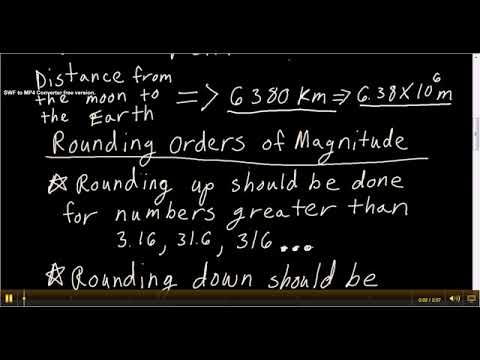 Distance from
SWF to MP4 Converter free version.
the moon to
the Earth
=> 6380 Km => 6.38X10⁶m
Rounding Orders of Magnitude
☆ Rounding up should be done
for numbers greater than
3.16, 31.6, 316 ....
☆ Rounding down should be
0:02 / 2:57